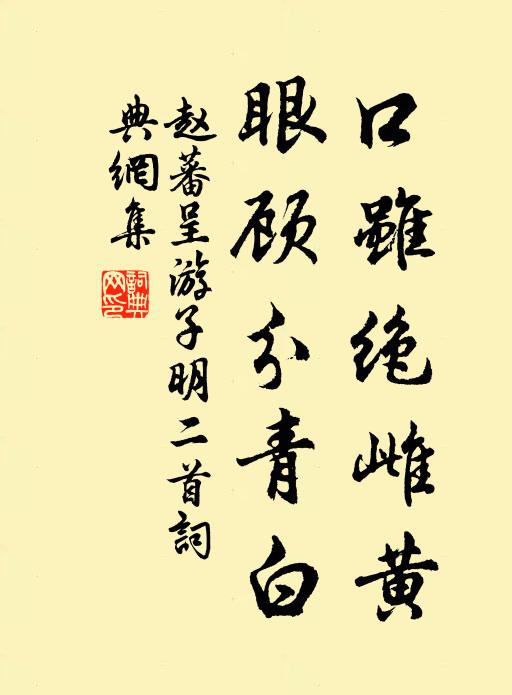 口雖绝雌黄
眼顾分青白
赵蕃呈游子明二首詞
典網集
詞典网印